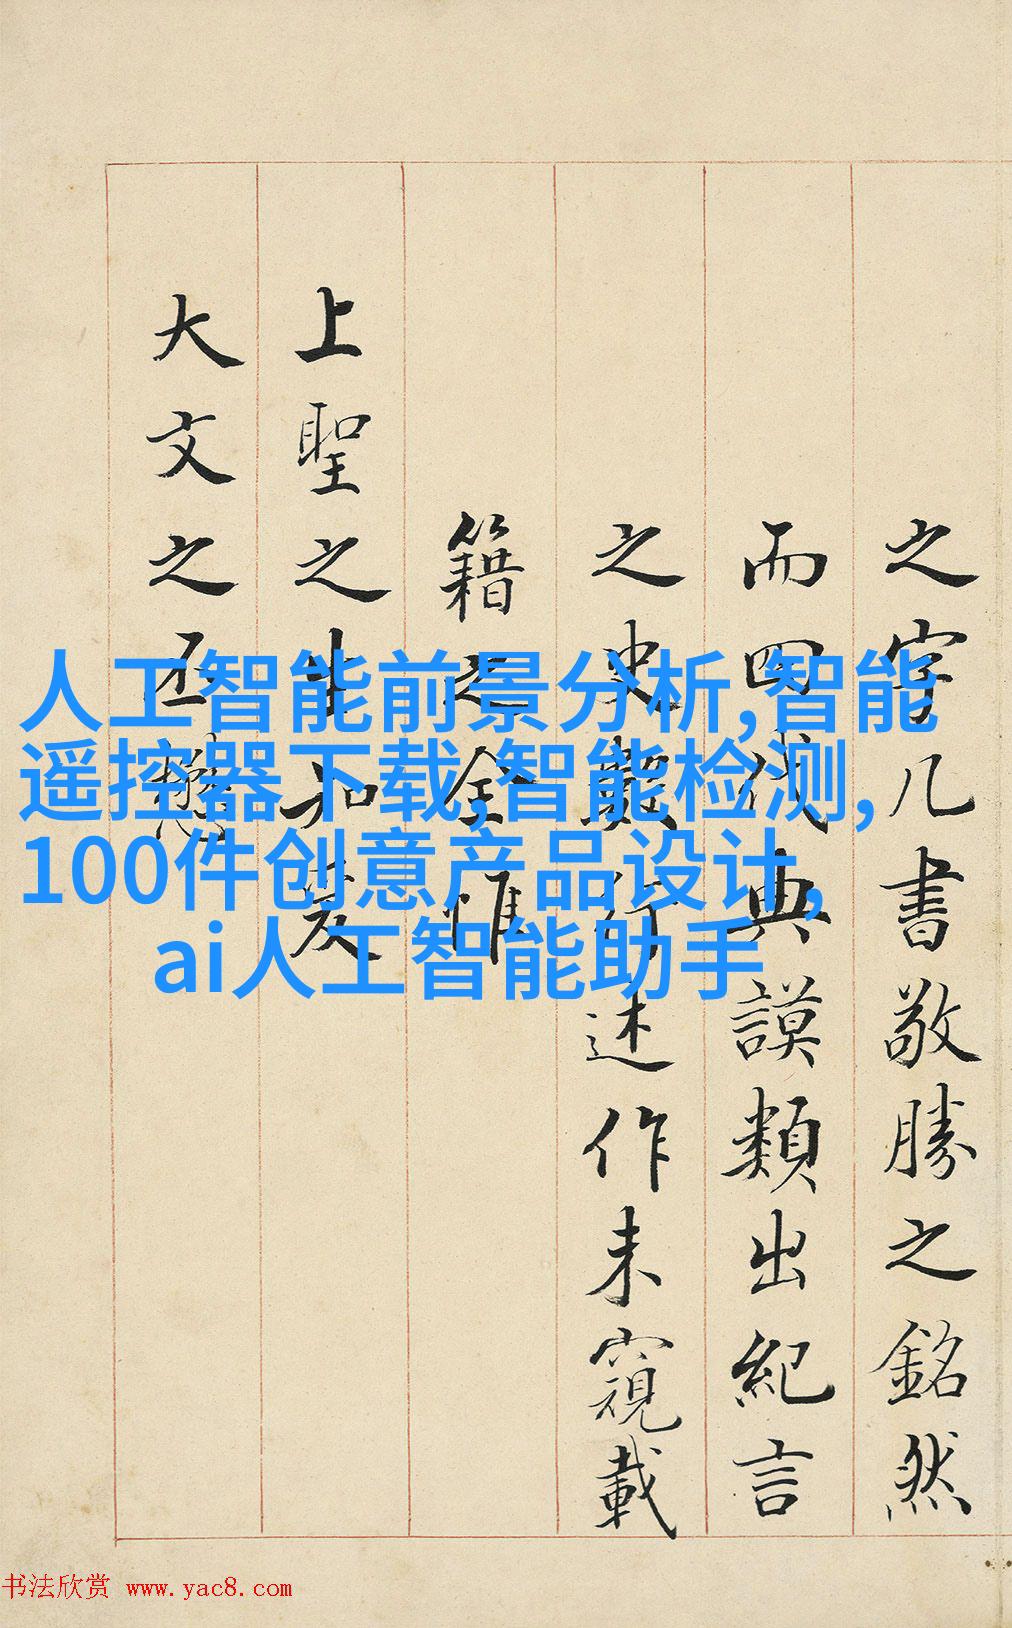 之字几書敬勝之銘然
而四代典謨類出紀言
之史數行述作未窺載
籍之全惟
上聖之生知爰
大文之丕
人工智能前景分析,智能
遥控器下载,智能检测,
100件创意产品设计,
ai人工智能助手
书法欣赏 www.yac8.com